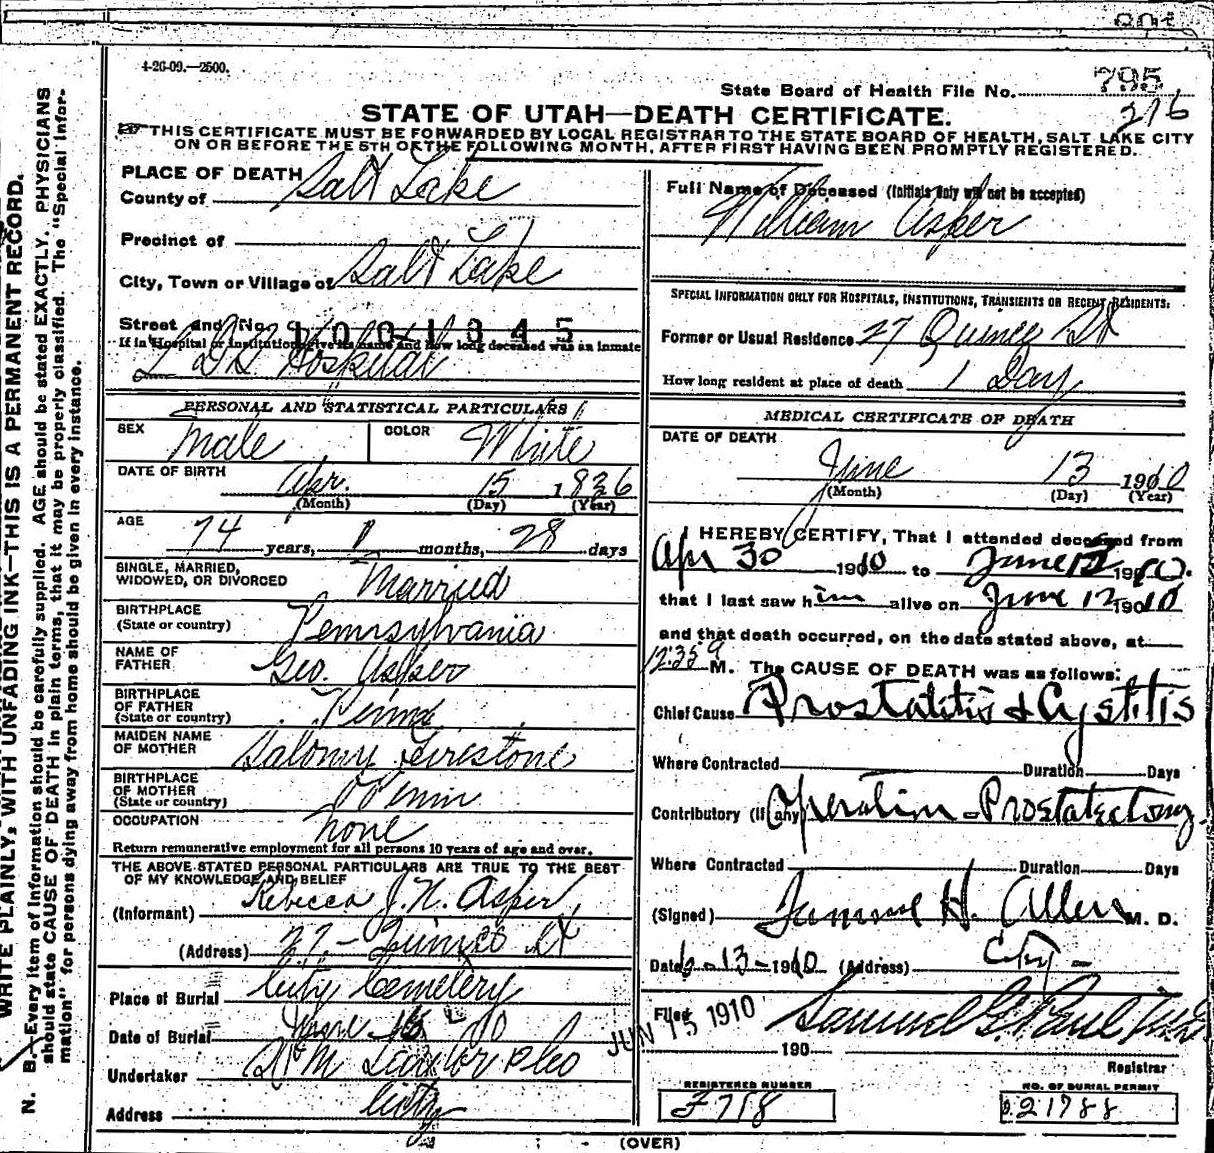 4-26-09.—2500.
State Board of Health File No. 795
216
STATE OF UTAH—DEATH CERTIFICATE.
THIS CERTIFICATE MUST BE FORWARDED BY LOCAL REGISTRAR TO THE STATE BOARD OF HEALTH, SALT LAKE CITY
ON OR BEFORE THE 5TH OF THE FOLLOWING MONTH, AFTER FIRST HAVING BEEN PROMPTLY REGISTERED.
PLACE OF DEATH
County of Salt Lake
Precinct of
City, Town or Village of Salt Lake
Street and No.
If in Hospital or institution, give its name and how long deceased was an inmate
L D S Hospital
PERSONAL AND STATISTICAL PARTICULARS
SEX Male COLOR White
DATE OF BIRTH
Apr. 15 1836
(Month) (Day) (Year)
AGE
74 years, 1 months, 28 days
SINGLE, MARRIED,
WIDOWED, OR DIVORCED Married
BIRTHPLACE
(State or country) Pennsylvania
NAME OF
FATHER Geo. Asper
BIRTHPLACE
OF FATHER
(State or country) Penna
MAIDEN NAME
OF MOTHER Salomy Firestone
BIRTHPLACE
OF MOTHER
(State or country) Penn
OCCUPATION none
Return remunerative employment for all persons 10 years of age and over.
THE ABOVE STATED PERSONAL PARTICULARS ARE TRUE TO THE BEST
OF MY KNOWLEDGE AND BELIEF
(Informant) Rebecca J. N. Asper
(Address) 27 - Quince St
Place of Burial City Cemetery
Date of Burial June 15
Undertaker
Address City
Full Name of Deceased (Initials only will not be accepted)
William Asper
SPECIAL INFORMATION ONLY FOR HOSPITALS, INSTITUTIONS, TRANSIENTS OR RECENT RESIDENTS:
Former or Usual Residence 27 Quince St
How long resident at place of death 1 Day
MEDICAL CERTIFICATE OF DEATH
DATE OF DEATH
June 13 1910
(Month) (Day) (Year)
I HEREBY CERTIFY, That I attended deceased from
Apr 30 1910 to June 1910.
that I last saw him alive on June 12 1910
and that death occurred, on the date stated above, at
12:35 M. The CAUSE OF DEATH was as follows:
Chief Cause Prostatitis & Cystitis
Where Contracted Duration Days
Contributory (if any) Operation - Prostatectomy
Where Contracted Duration Days
(Signed) Samuel H. Allen M. D.
Date 6-13-1910 (Address) City -
Filed JUN 15 1910 Samuel G. Paul
190
Registrar
REGISTERED NUMBER
F 718
NO. OF BURIAL PERMIT
21788
(OVER)
WRITE PLAINLY, WITH UNFADING INK—THIS IS A PERMANENT RECORD.
N. B.—Every item of information should be carefully supplied. AGE should be stated EXACTLY. PHYSICIANS
should state CAUSE OF DEATH in plain terms, that it may be properly classified. The "Special Infor-
mation" for persons dying away from home should be given in every instance.